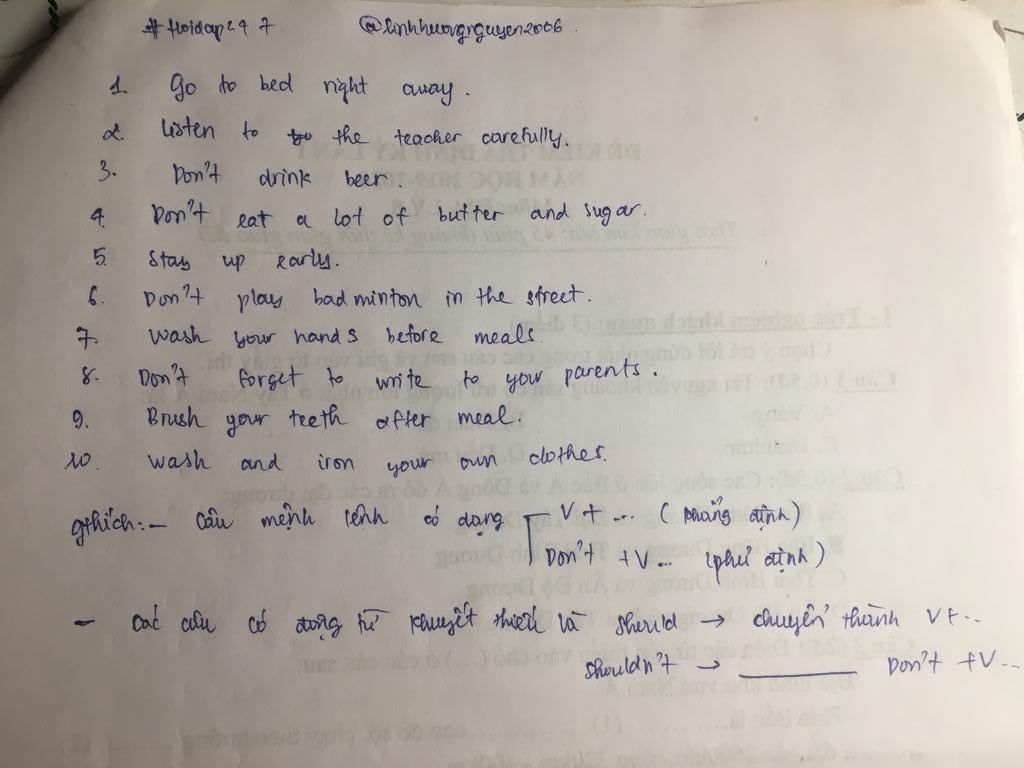 #hoidap247 @linhhuongnguyen2006.
1. Go to bed right away.
2. Listen to the teacher carefully.
3. Don't drink beer.
4. Don't eat a lot of butter and sugar.
5. Stay up early.
6. Don't play badminton in the street.
7. Wash your hands before meals.
8. Don't forget to write to your parents.
9. Brush your teeth after meal.
10. Wash and iron your own clothes.
gthích: - Câu mệnh lệnh có dạng V + ... (khẳng định)
Don't + V... (phủ định)
- Các câu có động từ khuyết thiếu là should → chuyển thành V+...
shouldn't → Don't + V...